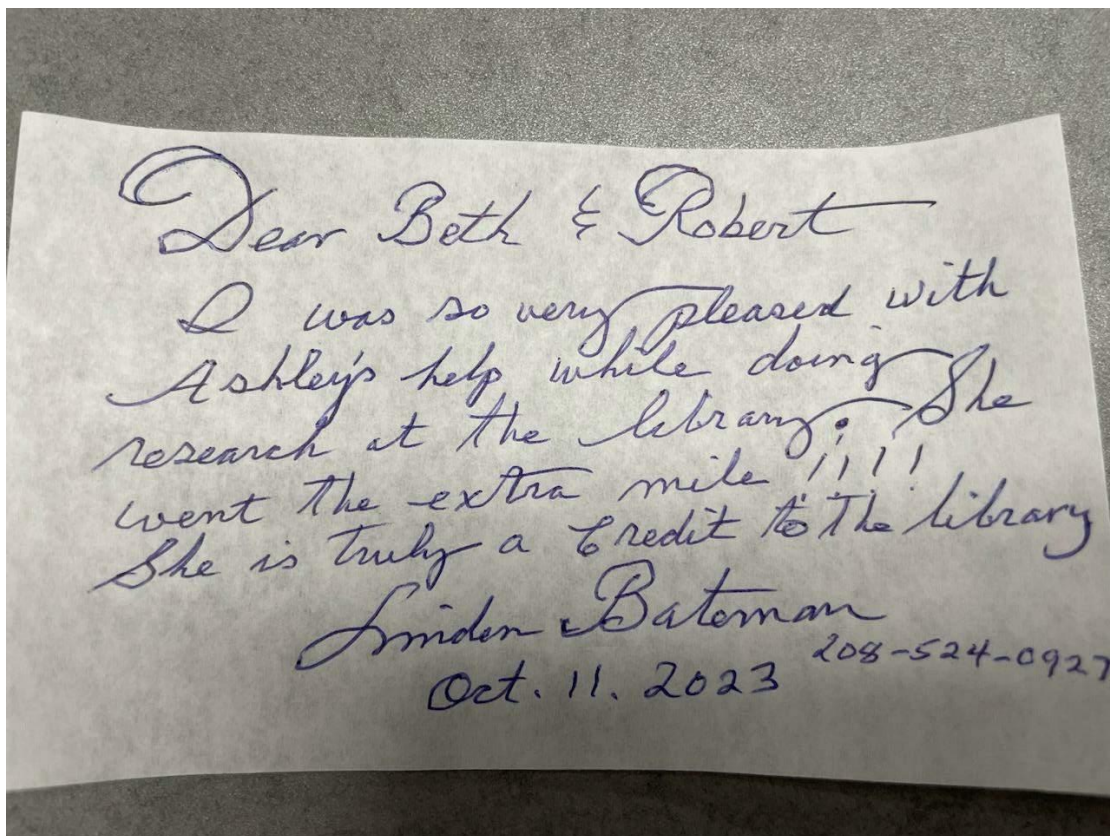 Dear Beth & Robert
I was so very pleased with
Ashley's help while doing
research at the library. She
went the extra mile !!!!
She is truly a Credit to the library
Linden Bateman
208-524-0927
Oct. 11. 2023